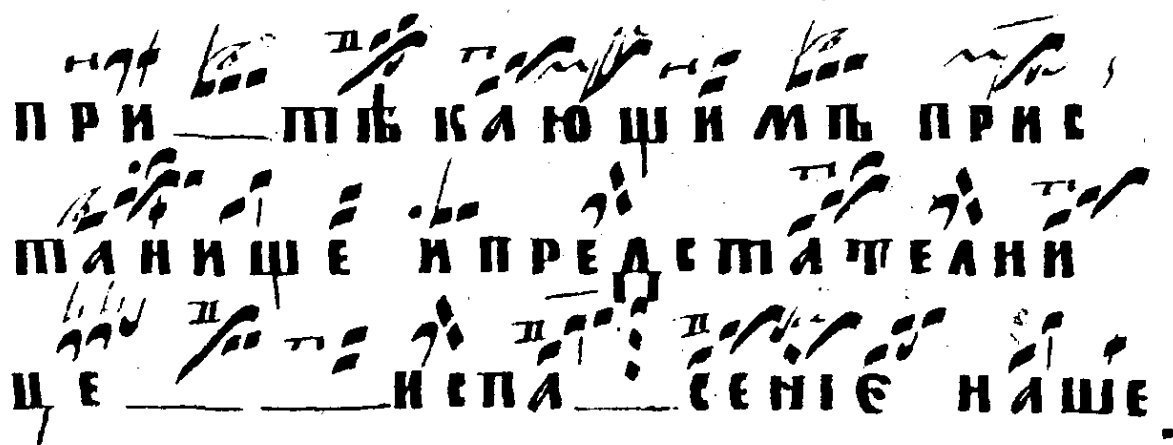 при__тѣкающимъ прис
танище и предстателни
це____ и спа__сенїе наше.